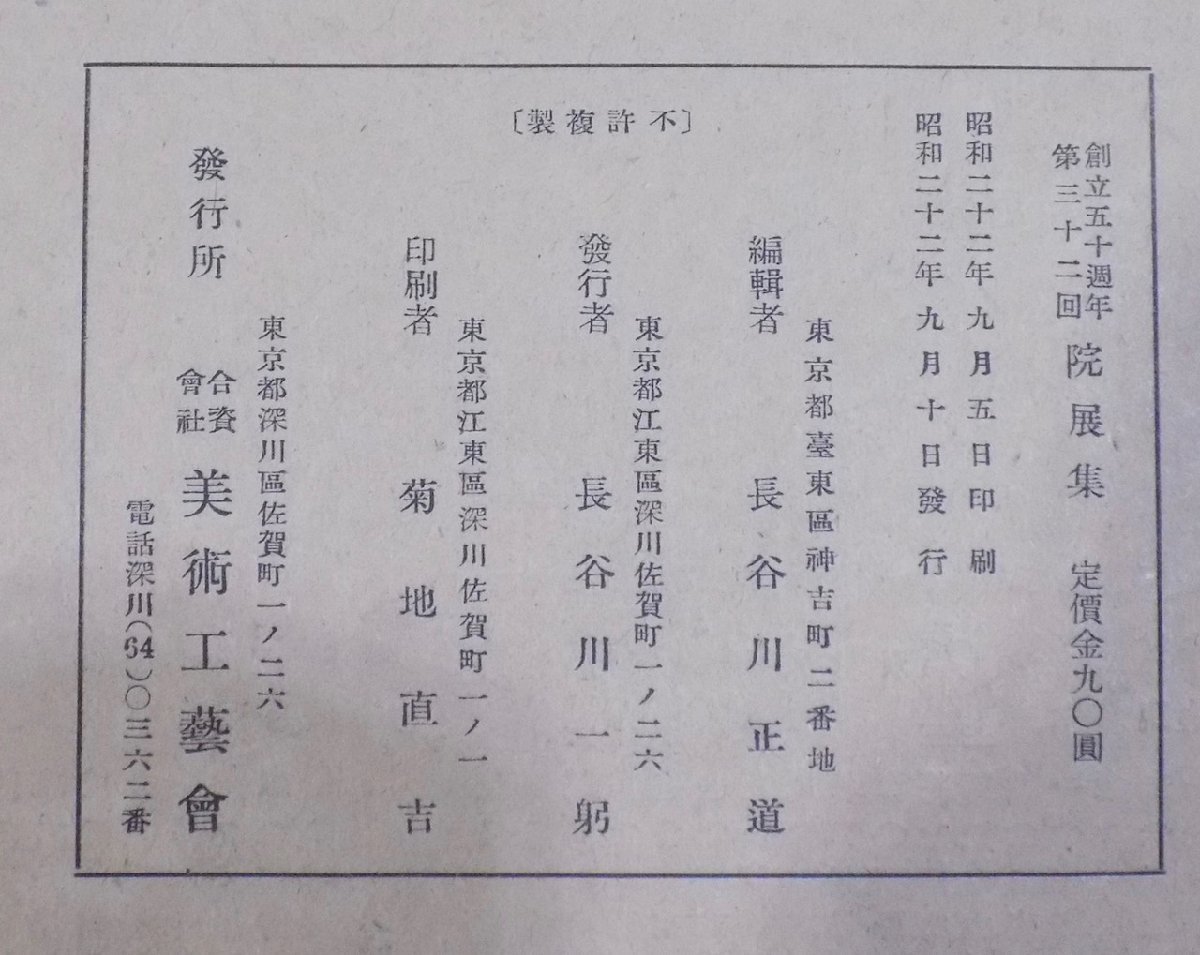 創立五十週年
第三十二回
院展集 定價金九〇圓
昭和二十二年九月五日印刷
昭和二十二年九月十日發行
〔不許複製〕
東京都臺東區神吉町二番地
編輯者 長谷川正道
東京都江東區深川佐賀町一ノ二六
發行者 長谷川一躬
東京都江東區深川佐賀町一ノ一
印刷者 菊地直吉
東京都深川區佐賀町一ノ二六
發行所 合資會社 美術工藝會
電話深川(64)〇三六二番